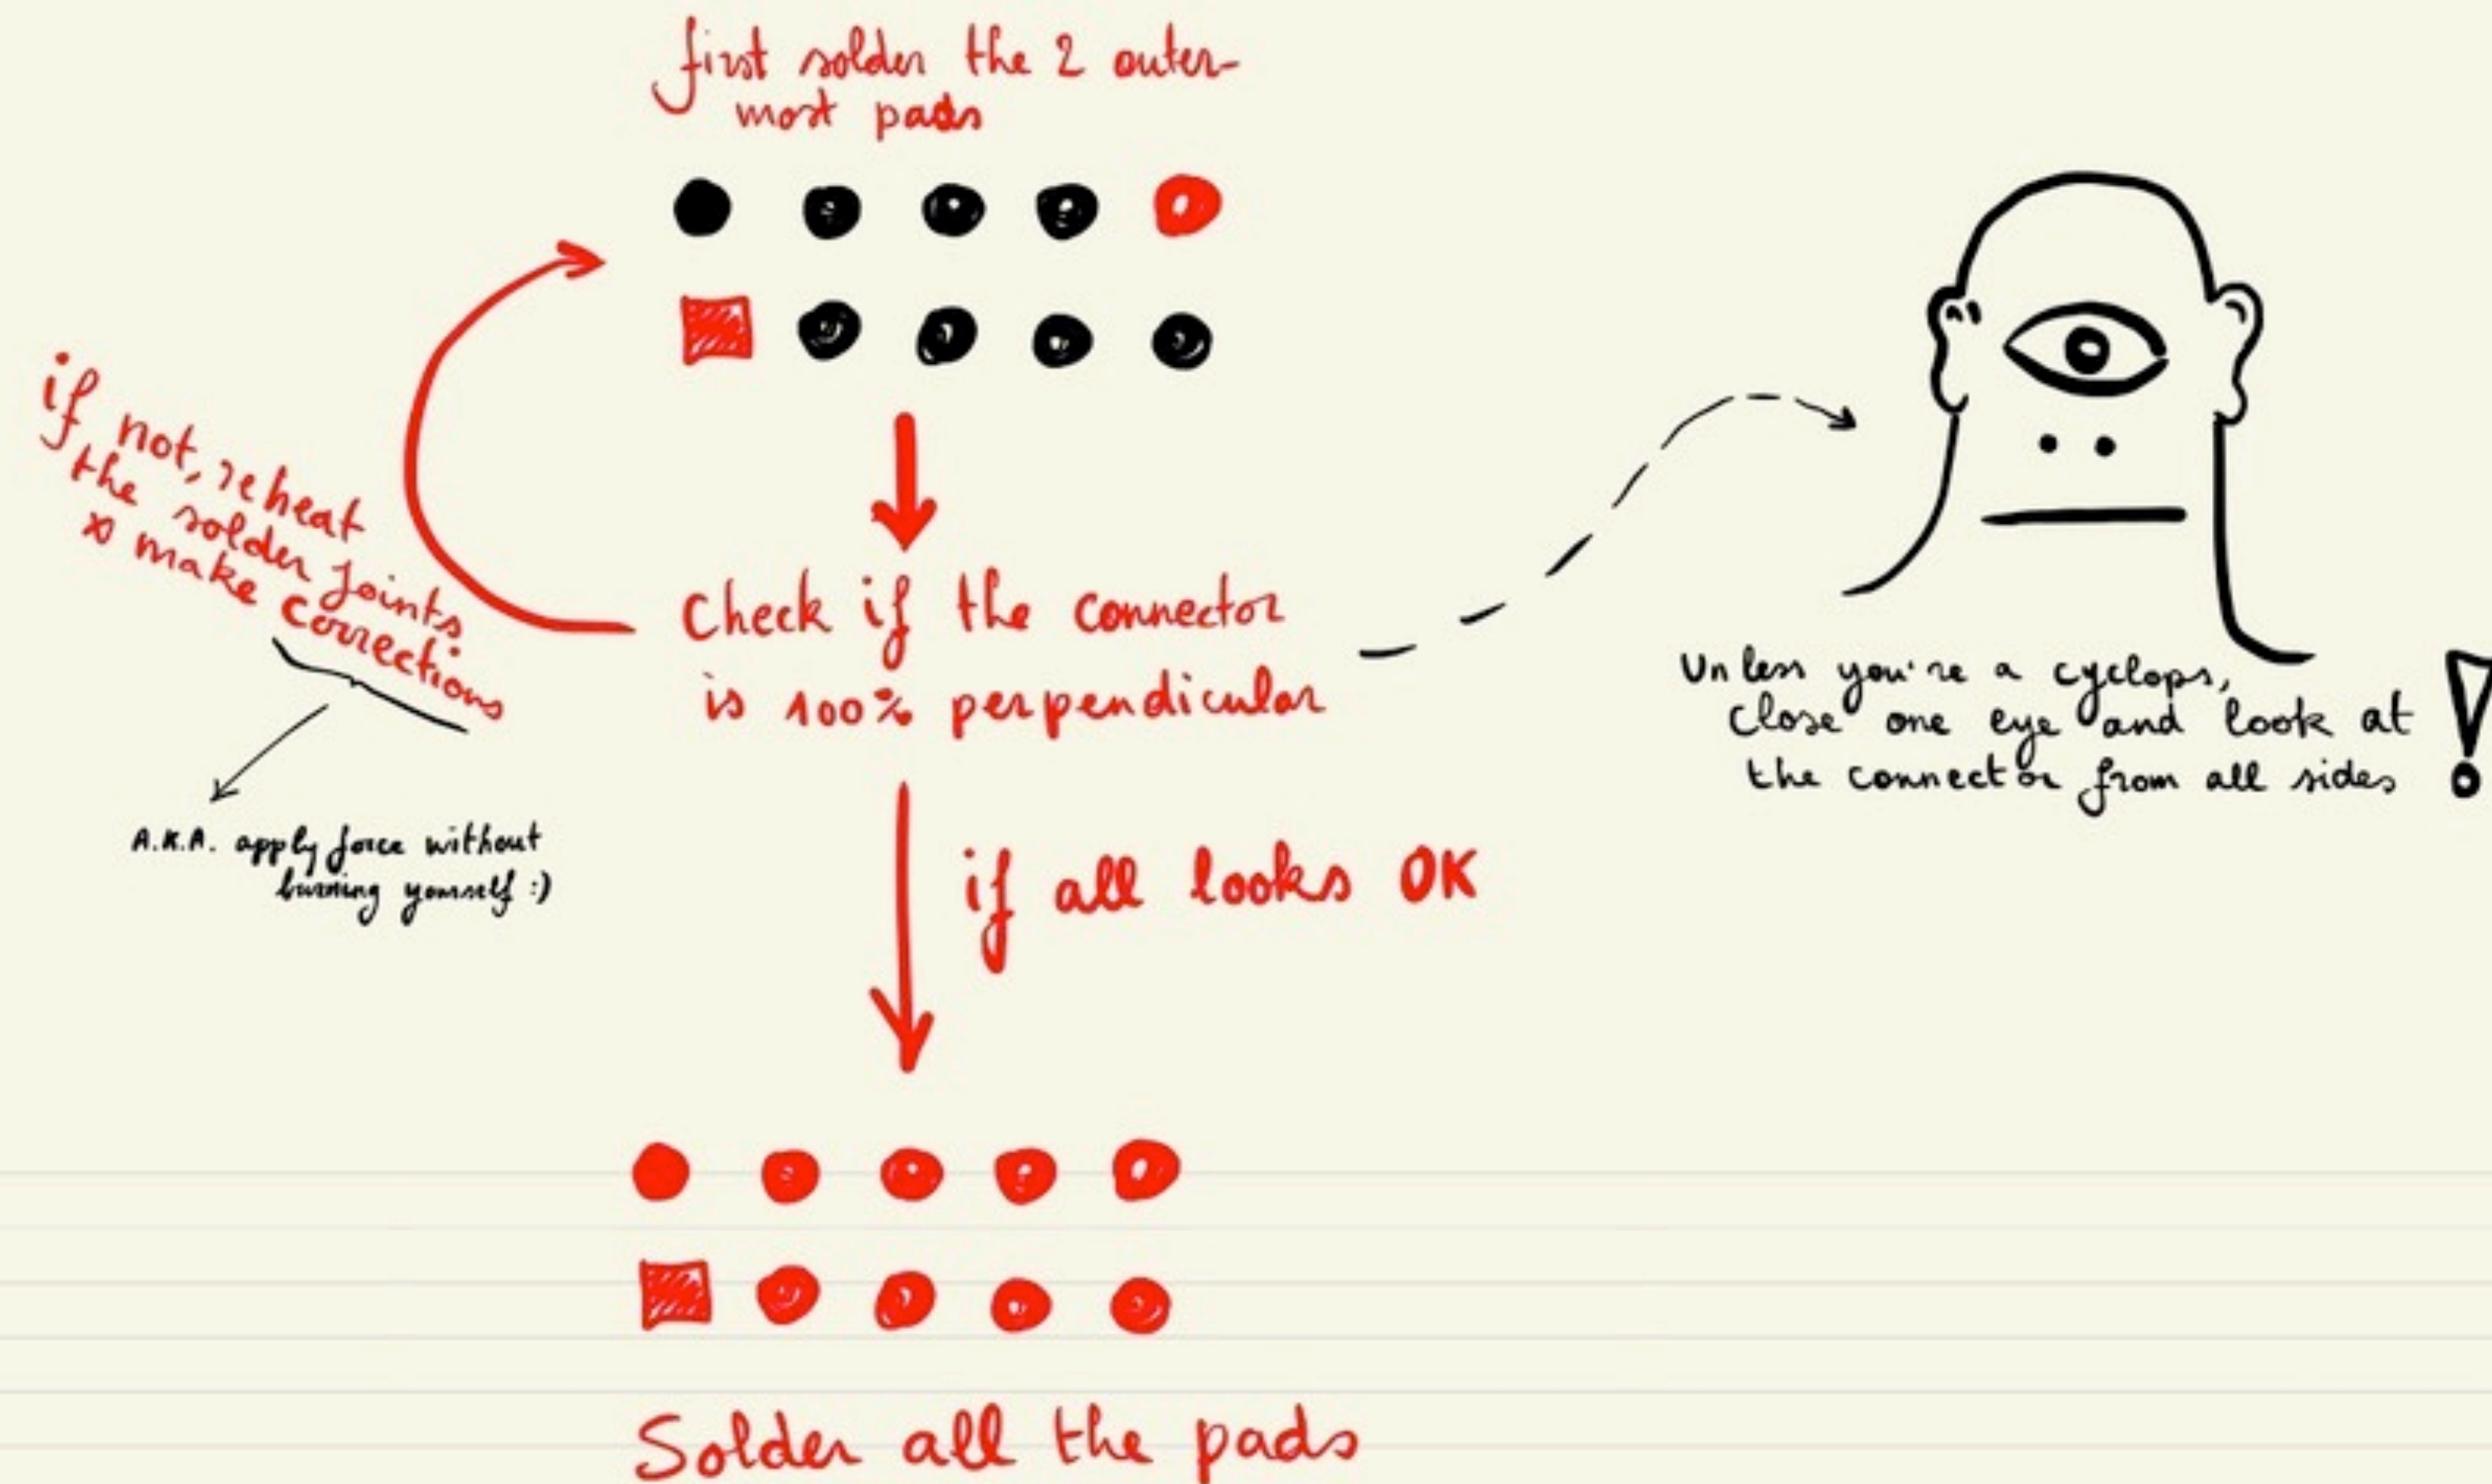 first solder the 2 outer-
most pads
if not, reheat
the solder joints
& make corrections
A.K.A. apply force without
burning yourself :)
Check if the connector
is 100% perpendicular
Unless you're a cyclops,
close one eye and look at
the connector from all sides !
if all looks OK
Solder all the pads